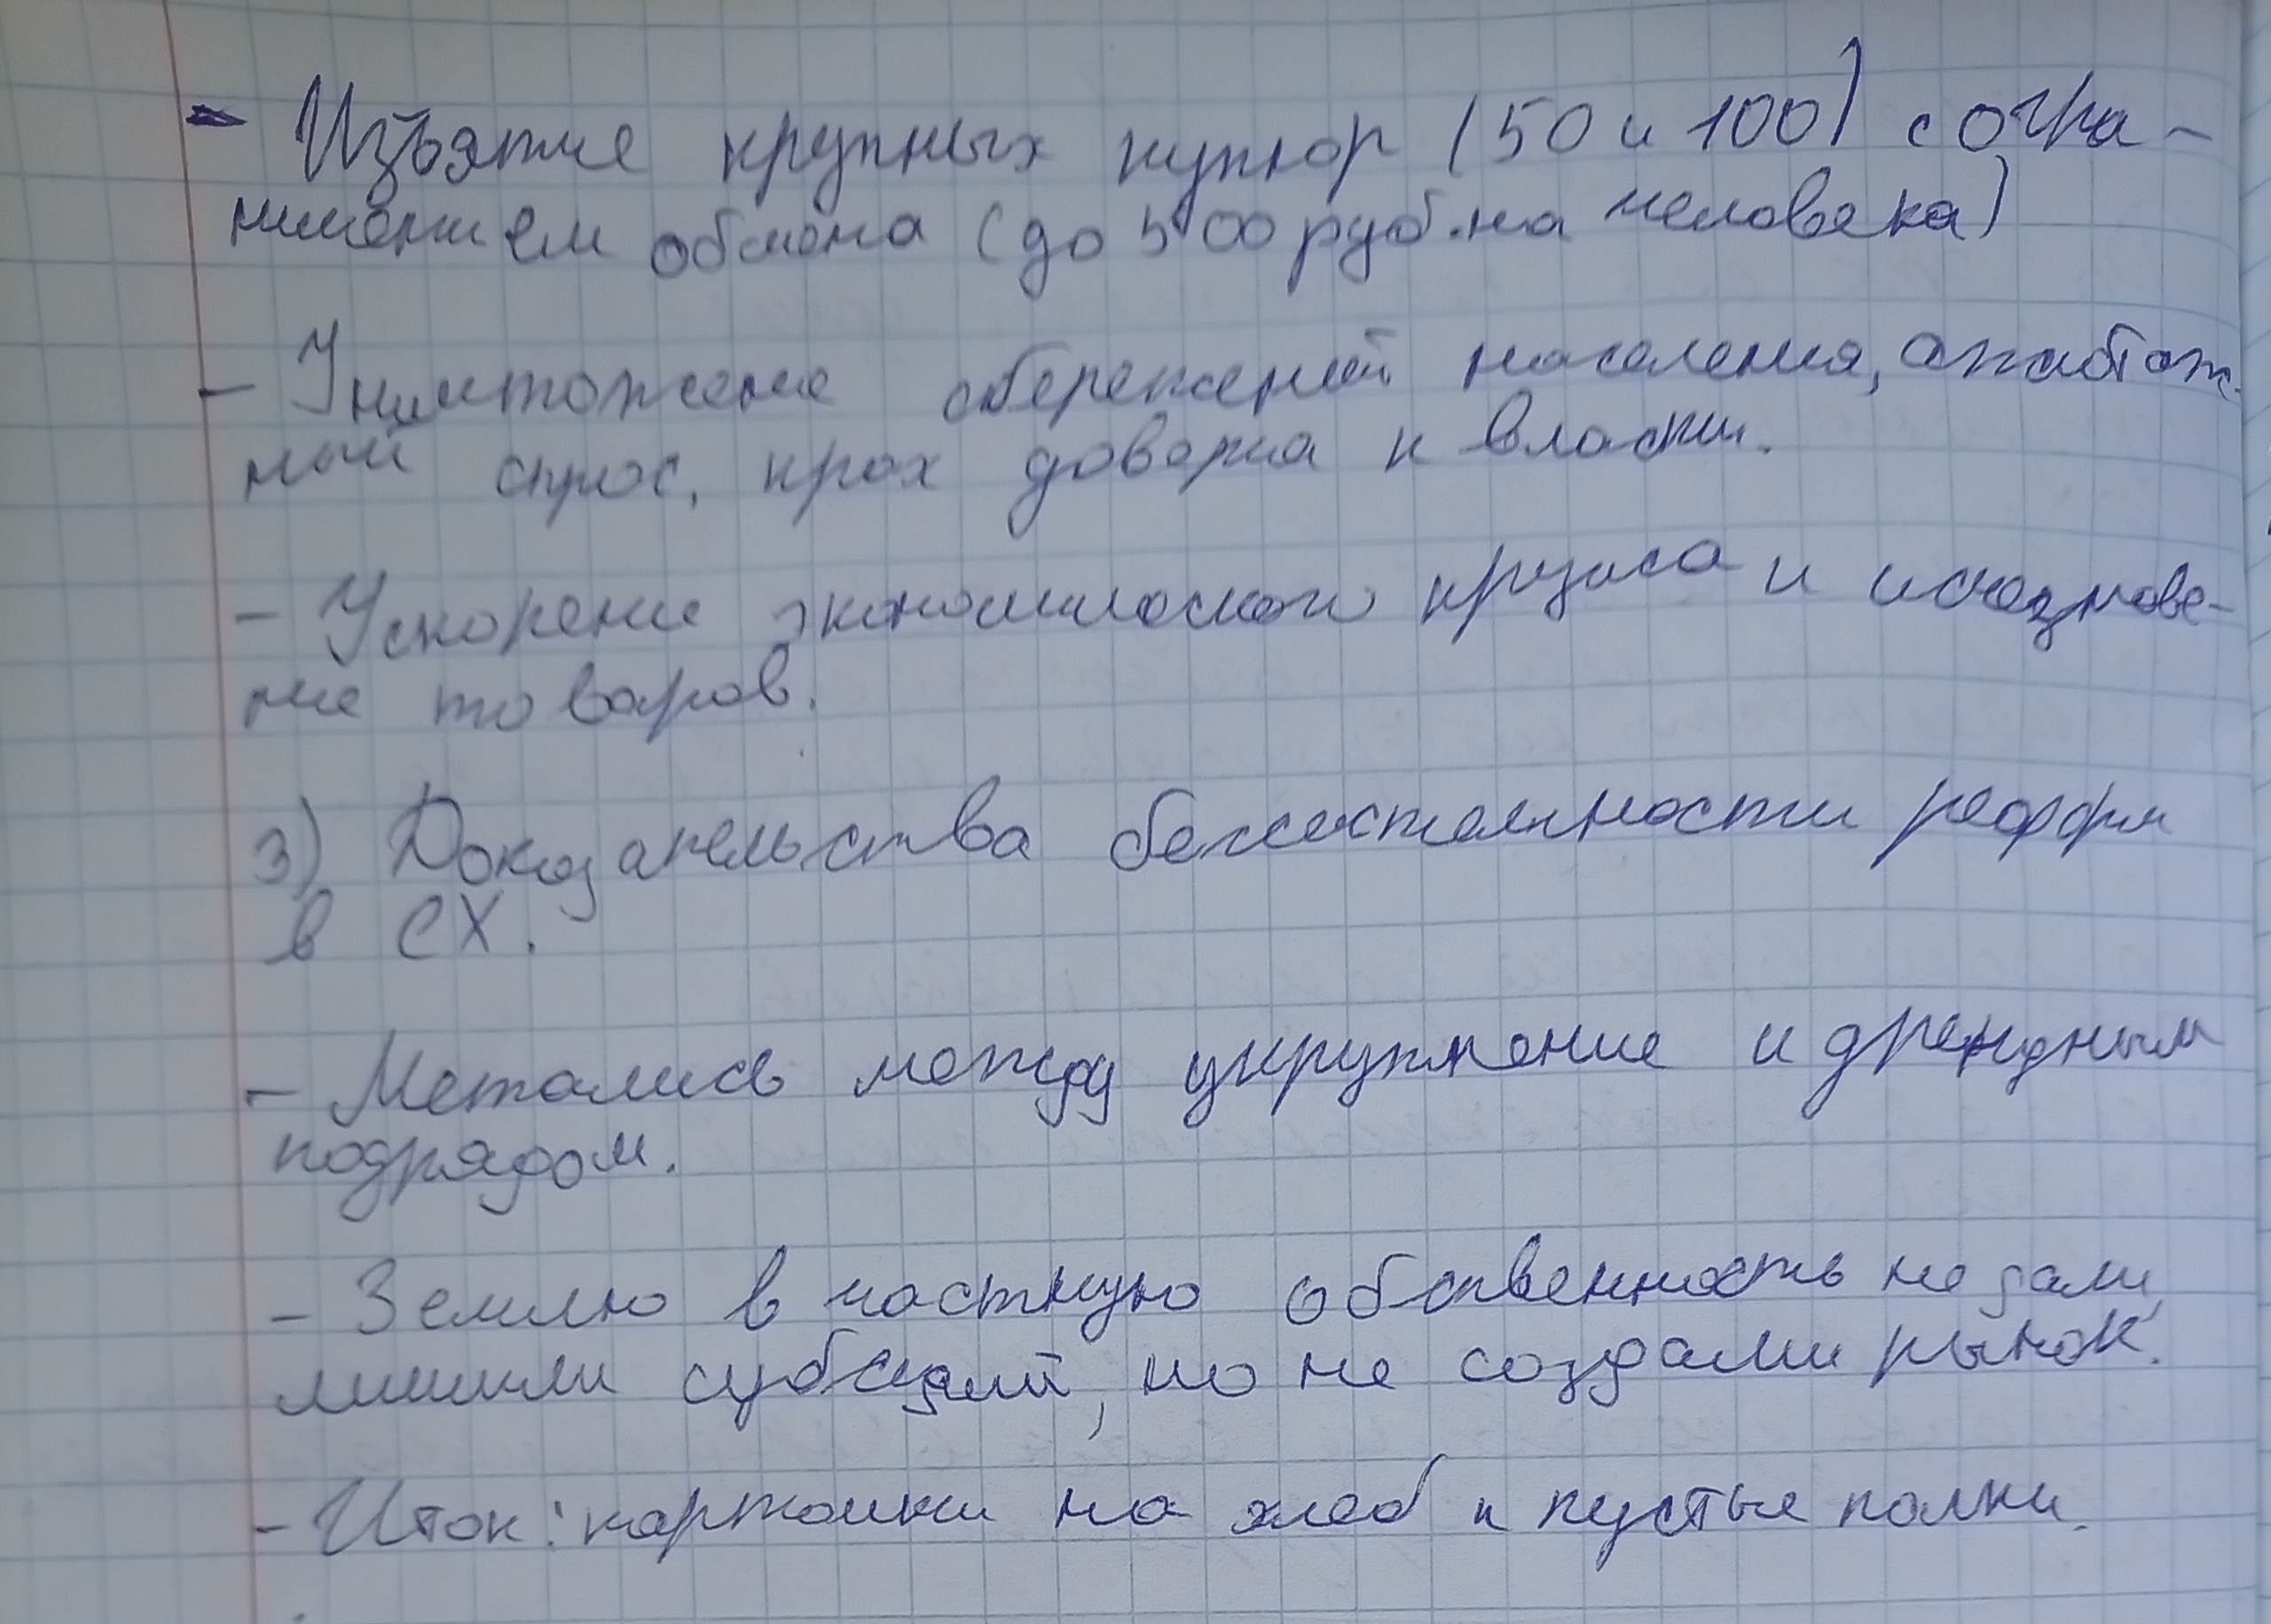 - Изъятие крупных купюр (50 и 100) с огра-
ничением обмена (до 500 руб. на человека)
- Уничтожение сбережений населения, ажиотаж-
ный спрос, крах доверия к власти.
- Ускорение экономического кризиса и исчезнове-
ние товаров.
3) Доказательства бессистемности реформ
в СХ.
- Метались между укрупнение и арендным
подрядом.
- Землю в частную обственность не дали,
лишили субсидий, но не создали рынок.
- Итог: карточки на хлеб и пустые полки.